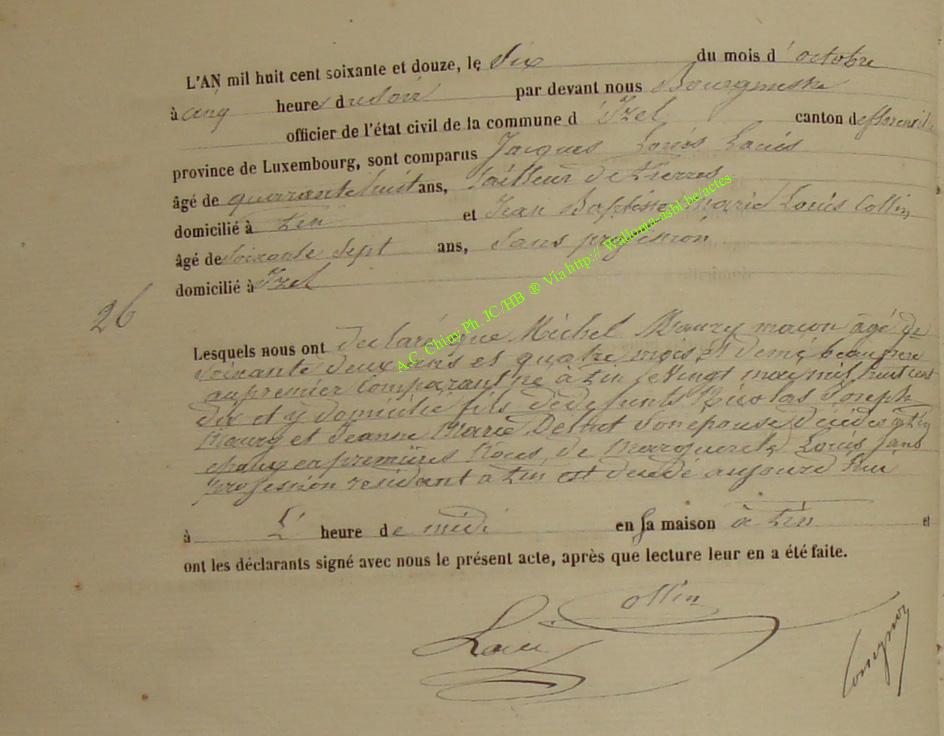 L'AN mil huit cent soixante et douze, le Six du mois d'octobre
à cinq heures du soir par devant nous Bourgmestre
officier de l'état civil de la commune d'Izel canton de florenville
province de Luxembourg, sont comparus Jacques Louis Louis
âgé de quarante huit ans, tailleur de pierres
domicilié à tin et Jean Baptiste marie Louis Collin
âgé de soixante sept ans, Sans profession
domicilié à Izel
26
Lesquels nous ont declaré que Michel Maury maçon âgé de
soixante deux ans et quatre mois et demi beau frere
au premier Comparant né à tin le vingt mai mil huit cent
dix et y domicilié fils de defunts Nicolas Joseph
Maury et Jeanne Marie son epouse décédés à tin
epoux en premieres Noces, de Marguerite Louis Sans
profession residant à tin est décédé aujourd'hui
à L' heure de midi en sa maison à tin et
ont les déclarants signé avec nous le présent acte, après que lecture leur en a été faite.
Collin
Louis
A.C. Chiny Ph. JC/HB ® Via http:// Wallonia-asbl.be/actes